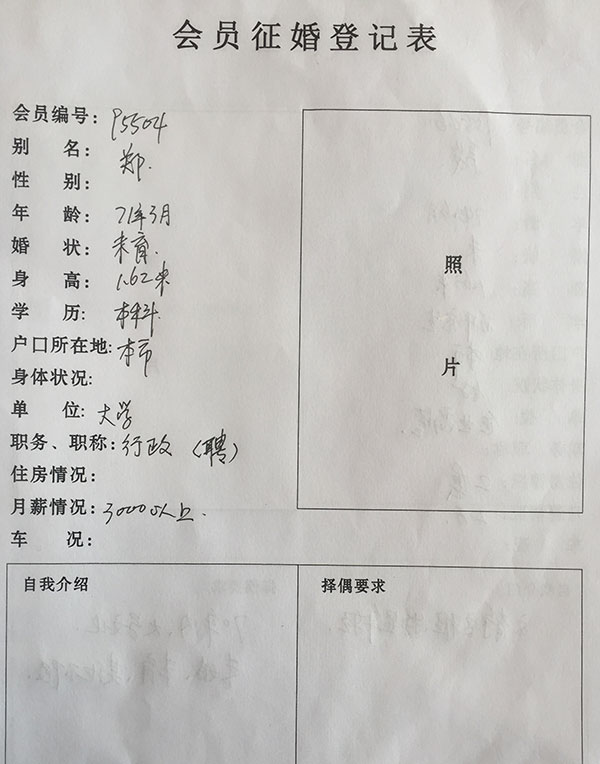 会员征婚登记表
会员编号: P5504
别 名: 郑.
性 别:
年 龄: 71年3月
婚 状: 未育.
身 高: 1.62米
学 历: 本科.
户口所在地: 本市
身体状况:
单 位: 大学
职务、职称: 行政 (聘)
住房情况:
月薪情况: 3000以上.
车 况:
照
片
自我介绍
择偶要求